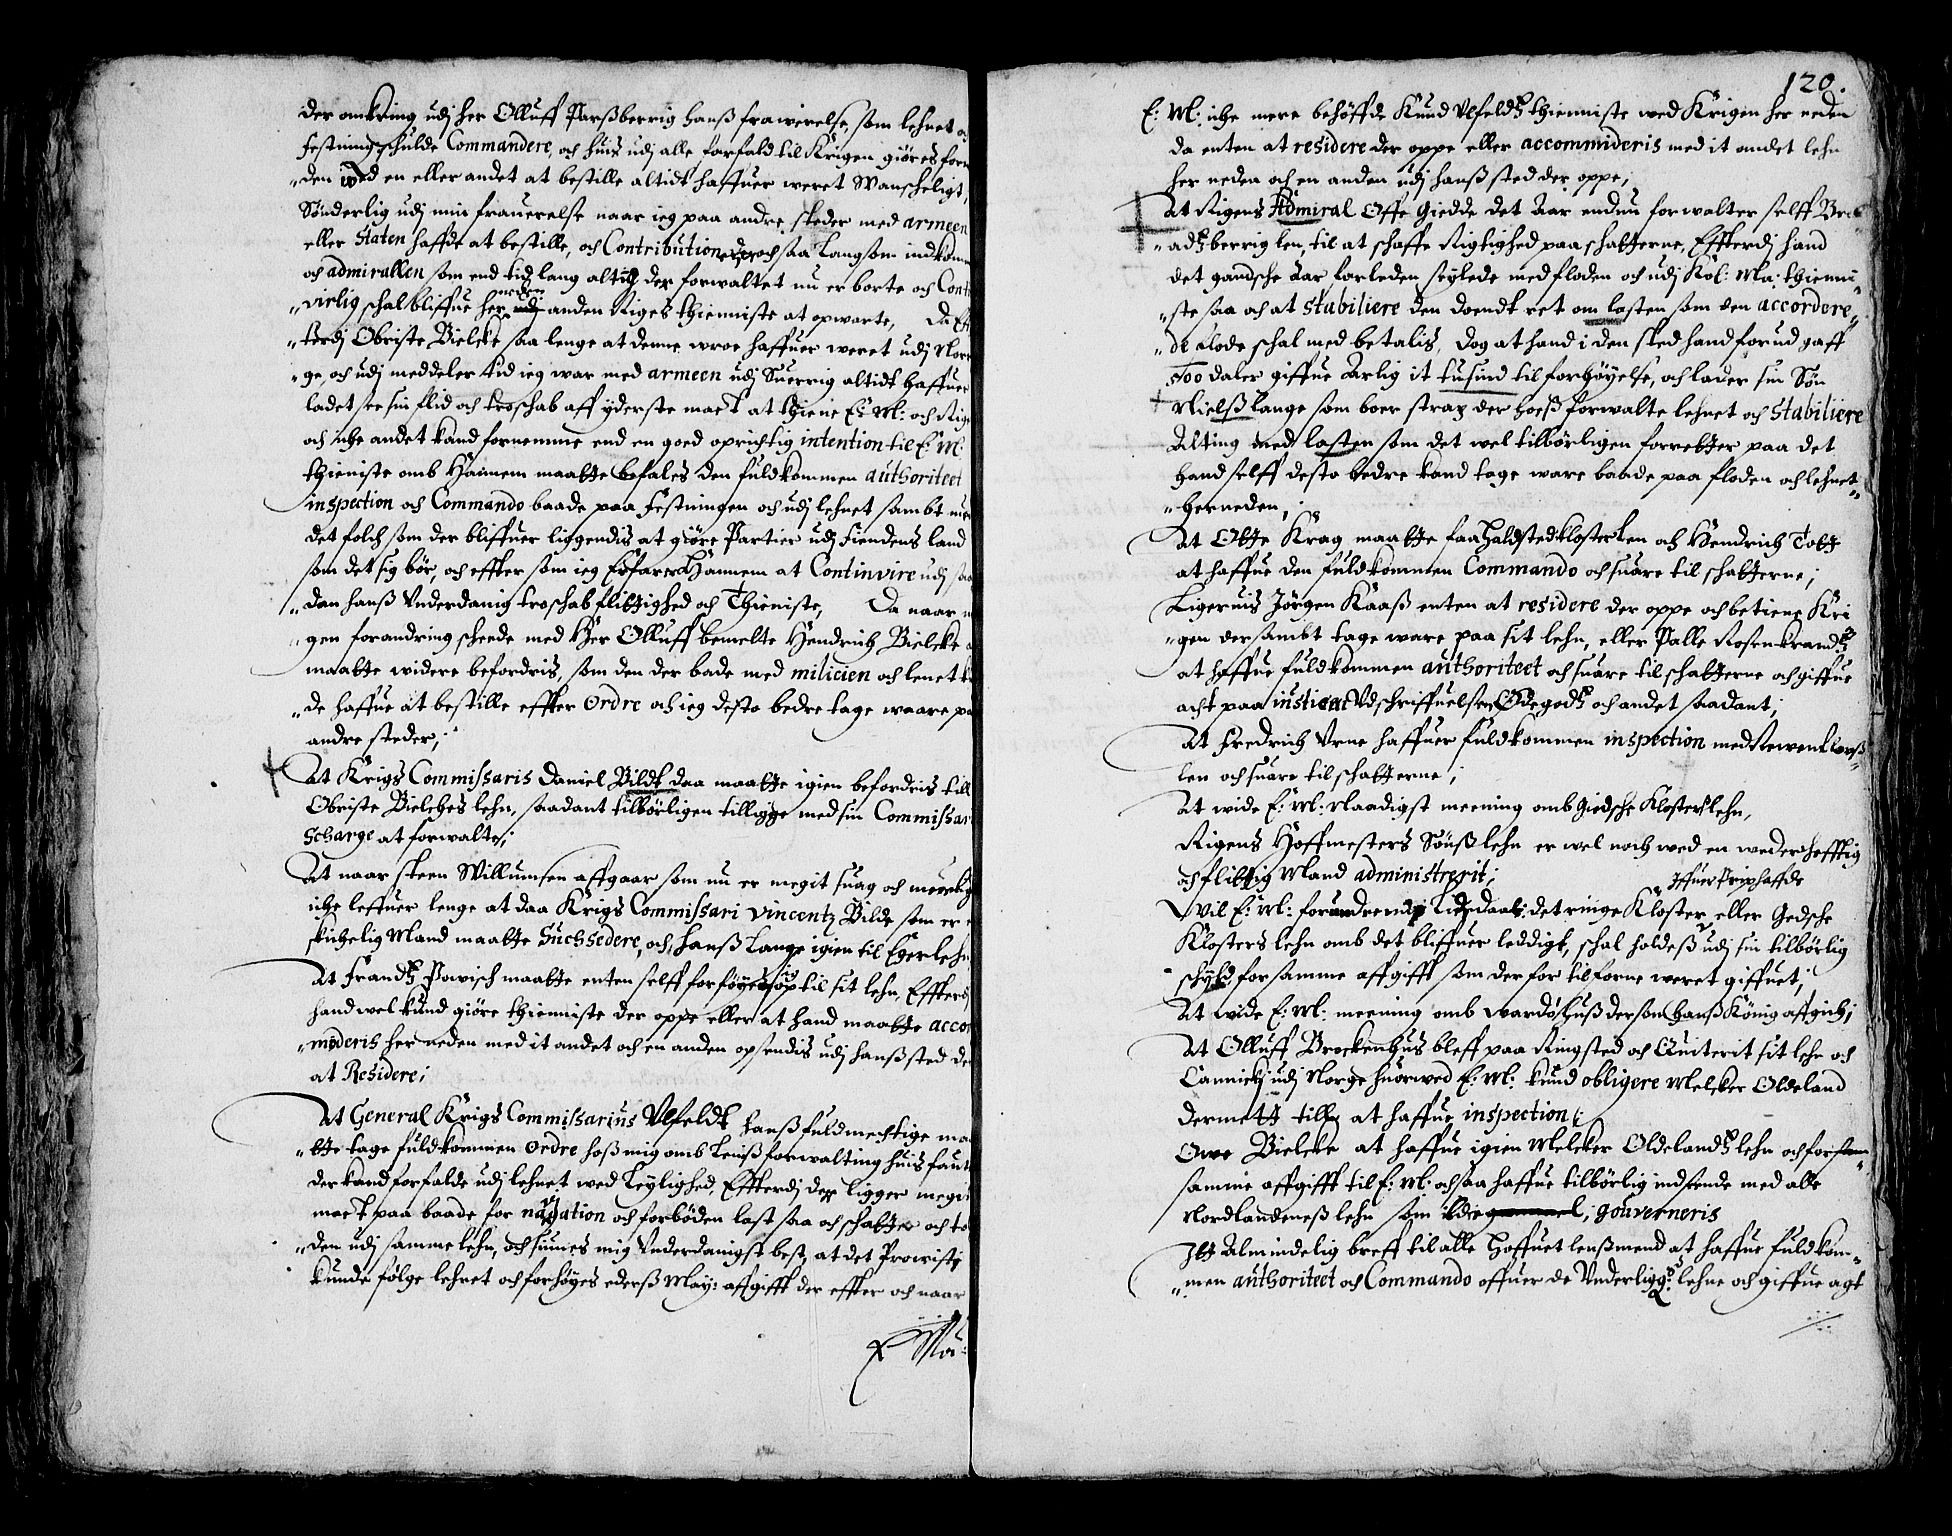 der omkring udj her Olluff Parsberrig hanß frawerelse, som lehnet
festning schulde Commandere, och huis udj alle forfald til Krigen giøres forn
den ved en eller andet at bestille altidt haffuer weret Wanscheligt,
Sønderlig udj min frauerelse naar ieg paa andre steder med armeen
eller Staten haffde at bestille, och Contributionerne och saa langsom indkom
och admirallen som end tid lang altid der forwaltet nu er borte och Cont
virlig schal bliffue her neden udj anden Riges thienniste at opwarte, Da Ef
terdj Obriste Bielcke saa lenge at denne wroe haffuer weret udj Nor
ge, och udj meddeler tid ieg war med armeen udj Suerrig altidt haffuer
ladet see sin flid och troschab aff yderste mact at thiene E: M: och Rige
och iche andet kand fornemme end en goed oprichtig intention til E: M:
thieniste omb Hannem maatte befales den fuldkommen authoriteet
inspection och Commando baade paa Festningen och udj lehnet sambt
det folch som der bliffuer liggendis at giøre Partier udj Fiendens land
som det sig bør, och effter som ieg Erfarer Hannem at Continuire udj saa
dan hanß Underdanig troschab flittighed och Thieniste, Da naar
gen forandring scheede med Her Olluff bemelte Hendrich Bielcke
maatte widere befordris, som den der bade med milicien och lenet
de haffue at bestille effter Ordre och ieg desto bedre tage waare pa
andre steder;
At Krigs Commissaris Daniel Bildt daa maatte igien befordris till
Obriste Bielches lehn, saadant tilbørligen tilligge med sin Commissar
Scharge at forwalte;
At naar Steen Willumsen affgaar som nu er megit suag och
iche leffuer lenge at daa Krigs Commissari Vincentz Bilde som er
skichelig Mand maatte Suchsedere, och Hanß Lange igien til Egerlehn,
At Frandtz Powisch maatte enten selff forføyes sig op til sit lehn, Effterdj
hand wel kund giøre thienniste der oppe eller at hand maatte accom
moderis her neden med it andet och en anden opsendis udj hanß sted der
at Residere;
At General Krigs Commissarius Ulfeldt hanß fuldmechtige maa
tte tage fuldkommen Ordre hoß mig omb lenß forwalting huis faut
der kand forfalde udj lehnet wed leylighed, Effterdj der ligger megit
mact paa baade for navigation och forböden last saa och schatter och to
den udj samme lehn, och siunes mig Underdanigst best, at det Prowisti
kunde følge lehnet och forhøyes ederß May: affgifft der effter och naar
E Ma:
120.
E: M: iche mere behöffde Knud Ulfeldtz thienniste wed Krigen her neden
da enten at residere der oppe eller accommideris med it andet lehn
her neden och en anden udj hanß sted der oppe;
At Rigens Admiral Offe Giedde det Aar endnu forwalter selff Bra
adtzberrig len, til at schaffe Rigtighed paa schatterne, Effterdj hand
det gandsche Aar forleden seylede med floden och udj Kol: Ma: thienni
ste saa och at stabiliere den doendt ret om lasten som den accordere
de flode schal med betalis, Dog at hand i den sted hand forud gaff
500 daler giffue Aarlig it tusind til forhøyelse, och lader sin Søn
Nielß Lange som boer strax der hoeß forwalte lehnet och stabiliere
Alting med lasten som det wel tilbørligen forretter paa det
hand selff desto bedre kand tage ware baade paa floden och lehnet
herneden;
At Otte Krag maatte faa Halsted kloster len och Hendrich Tott
at haffue den fuldkommen Commando och suare til schatterne;
Ligeruis Jörgen Kaaß enten at residere der oppe och betiene Kri
gen der sambt tage ware paa sit lehn, eller Palle Rosenkrandtz
at haffue fuldkommen authoriteet och suare til schatterne och giffue
acht paa insticat Udschriffuelsen Ödegodtz och andet saadant;
At Fredrich Urne haffuer fuldkommen inspection med Rewenklowß
len och suare til schatterne;
At wide E: M: Naadigst meening omb Giedsche Klosters lehn,
Rigens Hoffmesters Sönß lehn er wel noch wed en wederhefftig
och flittig Mand administrerit;
Iffuer Prip haffde
Vil E: M: forundre det ringe Kloster eller Gedsche
Klosters lehn omb det bliffuer leddigt, schal holdeß udj sin tilbörlig
schyld for samme affgifft som der for tilforne weret giffuet;
At wide E: M: meening omb Wardøhuß dersom Hanß König affgich;
At Olluff Brockenhus bleff paa Ringsted och Quiterit sit lehn och
Cannickj udj Norge huorwed E: M: kund obligere Melcker Oldeland
dermett till at haffue inspection;
Owe Bielcke at haffue igien Melcker Oldelandtz lehn och for
samme affgifft til E: M: och saa haffue tilbörlig indseende med alle
Nordlandeneß lehn som ; gouverneris
Itt Almindelig breff til alle Hoffuet lensmend at haffue fuldkom
men authoriteet och Commando offuer de Underligg: lehne och giffue agt